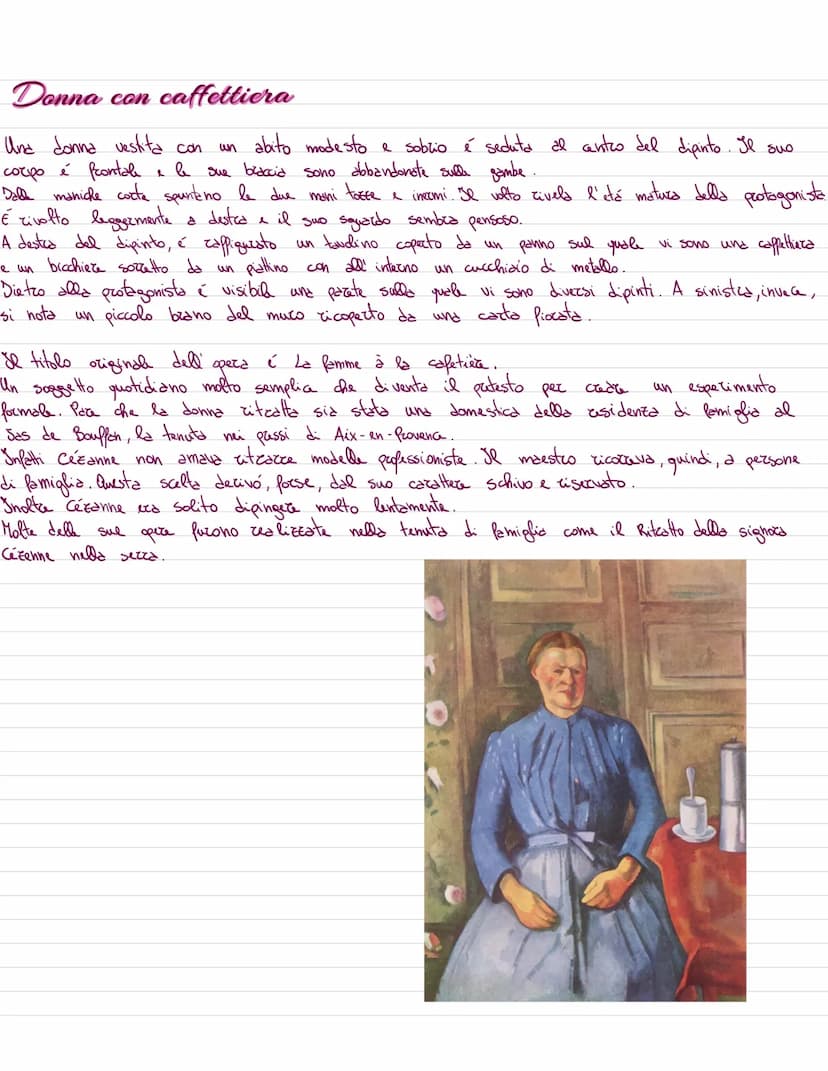 Donna con caffettiera
Una donna vestita con un abito modesto e sobrio é seduta al centro del dipinto. Il suo
corpo é frontale e le sue braccia sono abbandonate sulle gambe.
Dalle maniche corte spuntano le due mani tozze e inermi. Il volto rivela l'etá matura della protagonista.
É rivolto leggermente a destra e il suo sguardo sembra pensoso.
A destra del dipinto, é raffigurato un tavolino coperto da un panno sul quale vi sono una caffettiera
e un bicchiere sorretto da un piattino con all'interno un cucchiaio di metallo.
Dietro alla protagonista é visibile una parete sulla quale vi sono diversi dipinti. A sinistra, invece,
si nota un piccolo brano del muro ricoperto da una carta fiorata.
Il titolo originale dell'opera é La femme à la cafetière.
Un soggetto quotidiano molto semplice che diventa il pretesto per creare un esperimento
formale. Pare che la donna ritratta sia stata una domestica della residenza di famiglia al
Jas de Bouffan, la tenuta nei pressi di Aix-en-Provence.
Infatti Cézanne non amava ritrarre modelle professioniste. Il maestro ricorreva, quindi, a persone
di famiglia. Questa scelta derivó, forse, dal suo carattere schivo e riservato.
Inoltre Cézanne era solito dipingere molto lentamente.
Molte delle sue opere furono realizzate nella tenuta di famiglia come il Ritratto della signora
Cézenne nella serra.